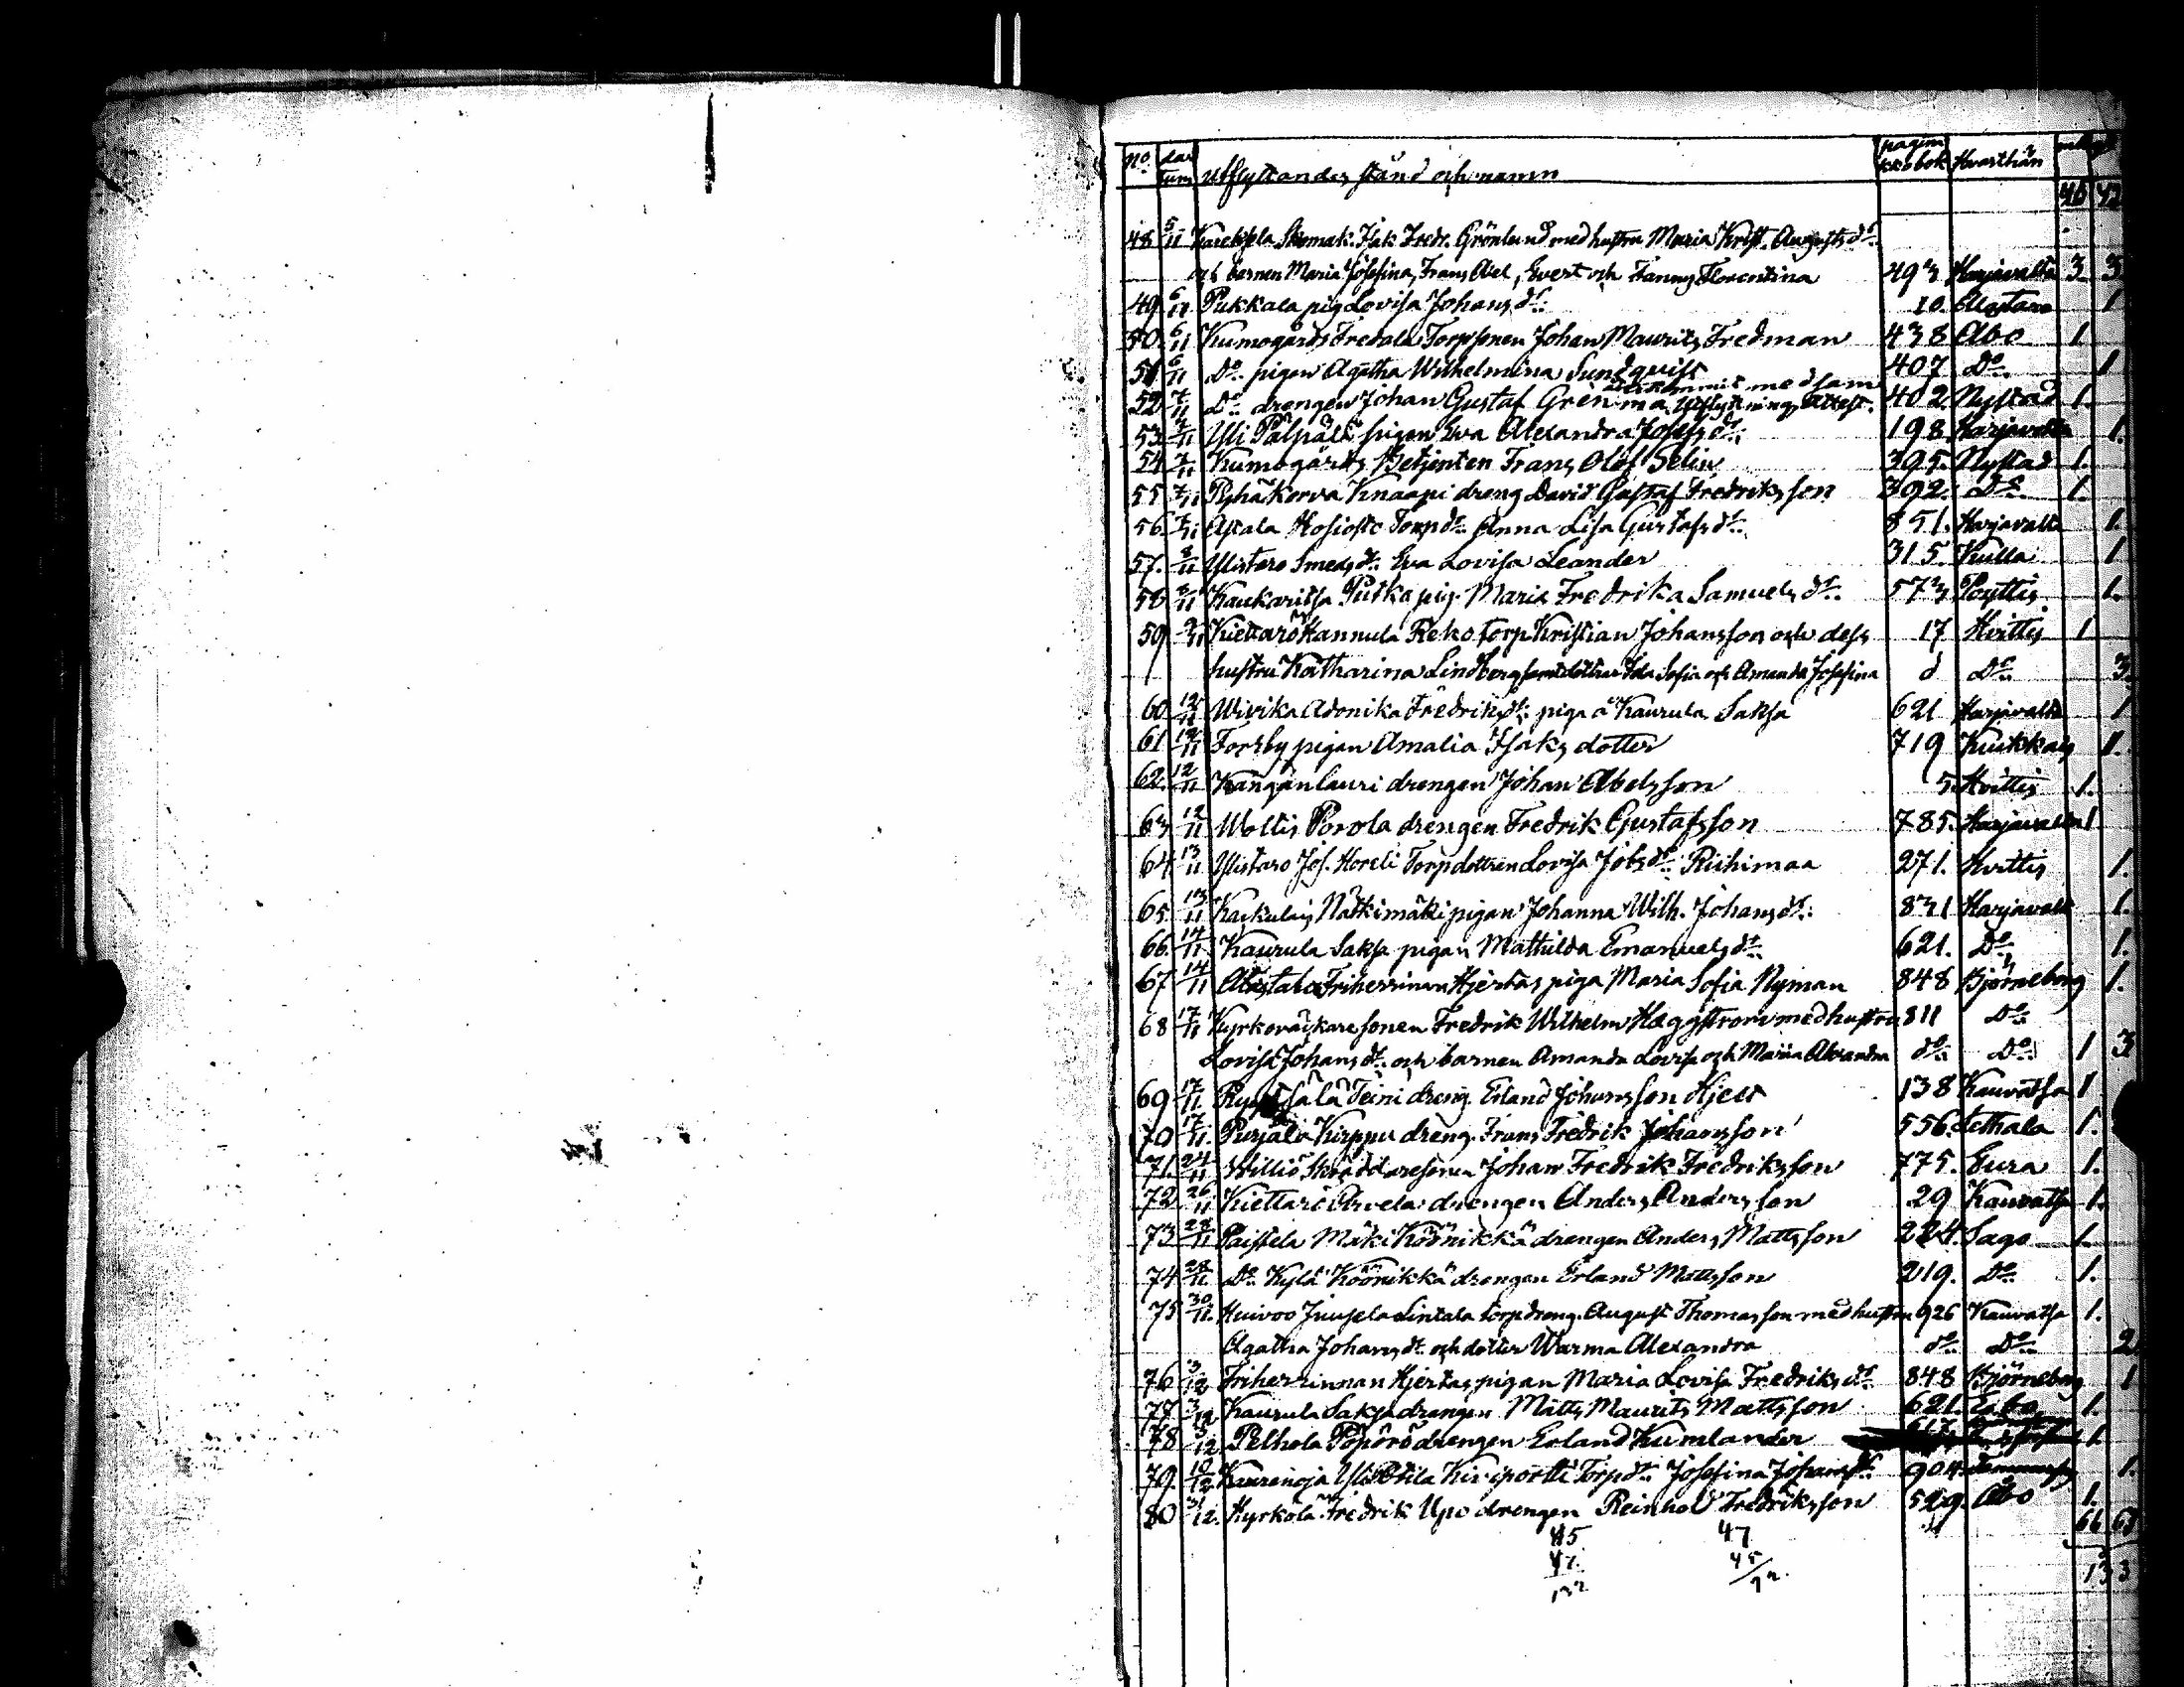 No. datum Utflyttandes stånd och namn pagim krkobok Hvarthän mk qk
46 42
48 5/11 Skomak. Isak Fredr. Grönlund med hustru Maria Krist. Augustsdr.
och barnen Maria Josefina, Frans Abel, Evert och Fanny Florentina 493 Harjavalta 3 3
49 6/11 Pukkala pig Lovisa Johansdr. 10. 1
50. 6/11 Kumogårds Fredala Torpsonen Johan Maurits Fredman 438 Åbo 1
51 6/11 Do. pigan Agatha Wilhelmina Sundqvist 407 Do. 1
52 7/11 Do. drengen Johan Gustaf Grén återkommit med samma Utflyttnings Attest. 402 Nystad 1.
53 7/11 Yli Pälpälä pigan Eva Alexandra Josefsdr. 198 Harjavalta 1.
54 7/11 Kumogårds Betjenten Frans Olof Selin 395. Nystad 1.
55 7/11 Pyhäkorva Knaapi dreng David Gustaf Fredriksson 392. Do. 1.
56. 7/11 Torpdr. Anna Lisa Gustafsdr. 851. Harjavalta 1.
57. 8/11 Ylistaro Smedsdr. Eva Lovisa Leander 315 Kulla 1
58 8/11 Kaukaritsa Putka pig. Maria Fredrika Samuelsdr. 573 Pöyttis 1.
59 9/11 Kiettarö Hannula Reko torp Kristian Johansson och dess 17 Hvittis 1
hustru Katharina Lindberg samt döttrar Ida Sofia och Amanda Josefina d Do. 3.
60 12/11 Wivika Adonika Fredriksdr. piga å Kaurula Saksa 621 Harjavalta 1
61 12/11 Forsby pigan Amalia Isaks dotter 719 1.
62. 12/11 Kanganlauri drengen Johan Abelsson 5 Hvittis 1.
63 12/11 Wottis Porola drengen Fredrik Gustafsson 785. Harjavalta 1
64 13/11 Ylistaro Jos. Horeli Torpdottren Lovisa Jobsdr. Riihimaa 271. Hvittis 1.
65 13/11 Nätkimäki pigan Johanna Wilh. Johansdr. 831 Harjavalt 1.
66. 14/11 Kaurula Saksa pigan Mathilda Emanuelsdr. 621. Do. 1.
67 14/11 Friherrinnan Hjertas piga Maria Sofia Nyman 848 Björneborg 1.
68 17/11 Kyrkoväktaresonen Fredrik Wilhelm Hæggstrom med hustru 811 Do.
Lovisa Johansdr. och barnen Amanda Lovisa och Maria Alexandra do. Do. 1 3
69 17/11 Teini dreng. Erland Johansson Hjelt 138 Kauvatsa 1
70 17/11. Purjala Kirppu dreng. Frans Fredrik Johansson 556. Lethala 1.
71. 24/11 Villiö Skräddaresonen Johan Fredrik Fredriksson 775. Eura 1.
72 26/11 Kiettarö Arvela drengen Anders Andersson 29 Kauvatsa 1.
73 28/11 Paistela Mäki Köönikkä drengen Anders Mattsson 224. Sago 1.
74 28/11 Do. Kylä Köönikkä drengen Erland Mattsson 219. Do. 1.
75 30/11. Huivoo Juusela Lintala torpdreng. August Thomasson med hustru 926 Kauvatsa 1.
Agatha Johansdr. och dotter Warma Alexandra do. Do. 2
76 3/12 Friherrinnan Hjertas pigan Maria Lovisa Fredriksdr. 848 Björneborg 1
77 3/12 Kaurula Saksa drengen Matts Maurits Mattsson 621. 1.
78 3/12 Pelhola Pöpörö drengen Erland Kumlander 1
79. 10/12 Kaurinoja Kiviportti Torpdr. Josefina Johansdr. 904. 1.
80 31/12. Hyrkölä Fredrik Upo drengen Reinhold Fredriksson 529. Åbo 1.
66 67
45 47
47 45
133